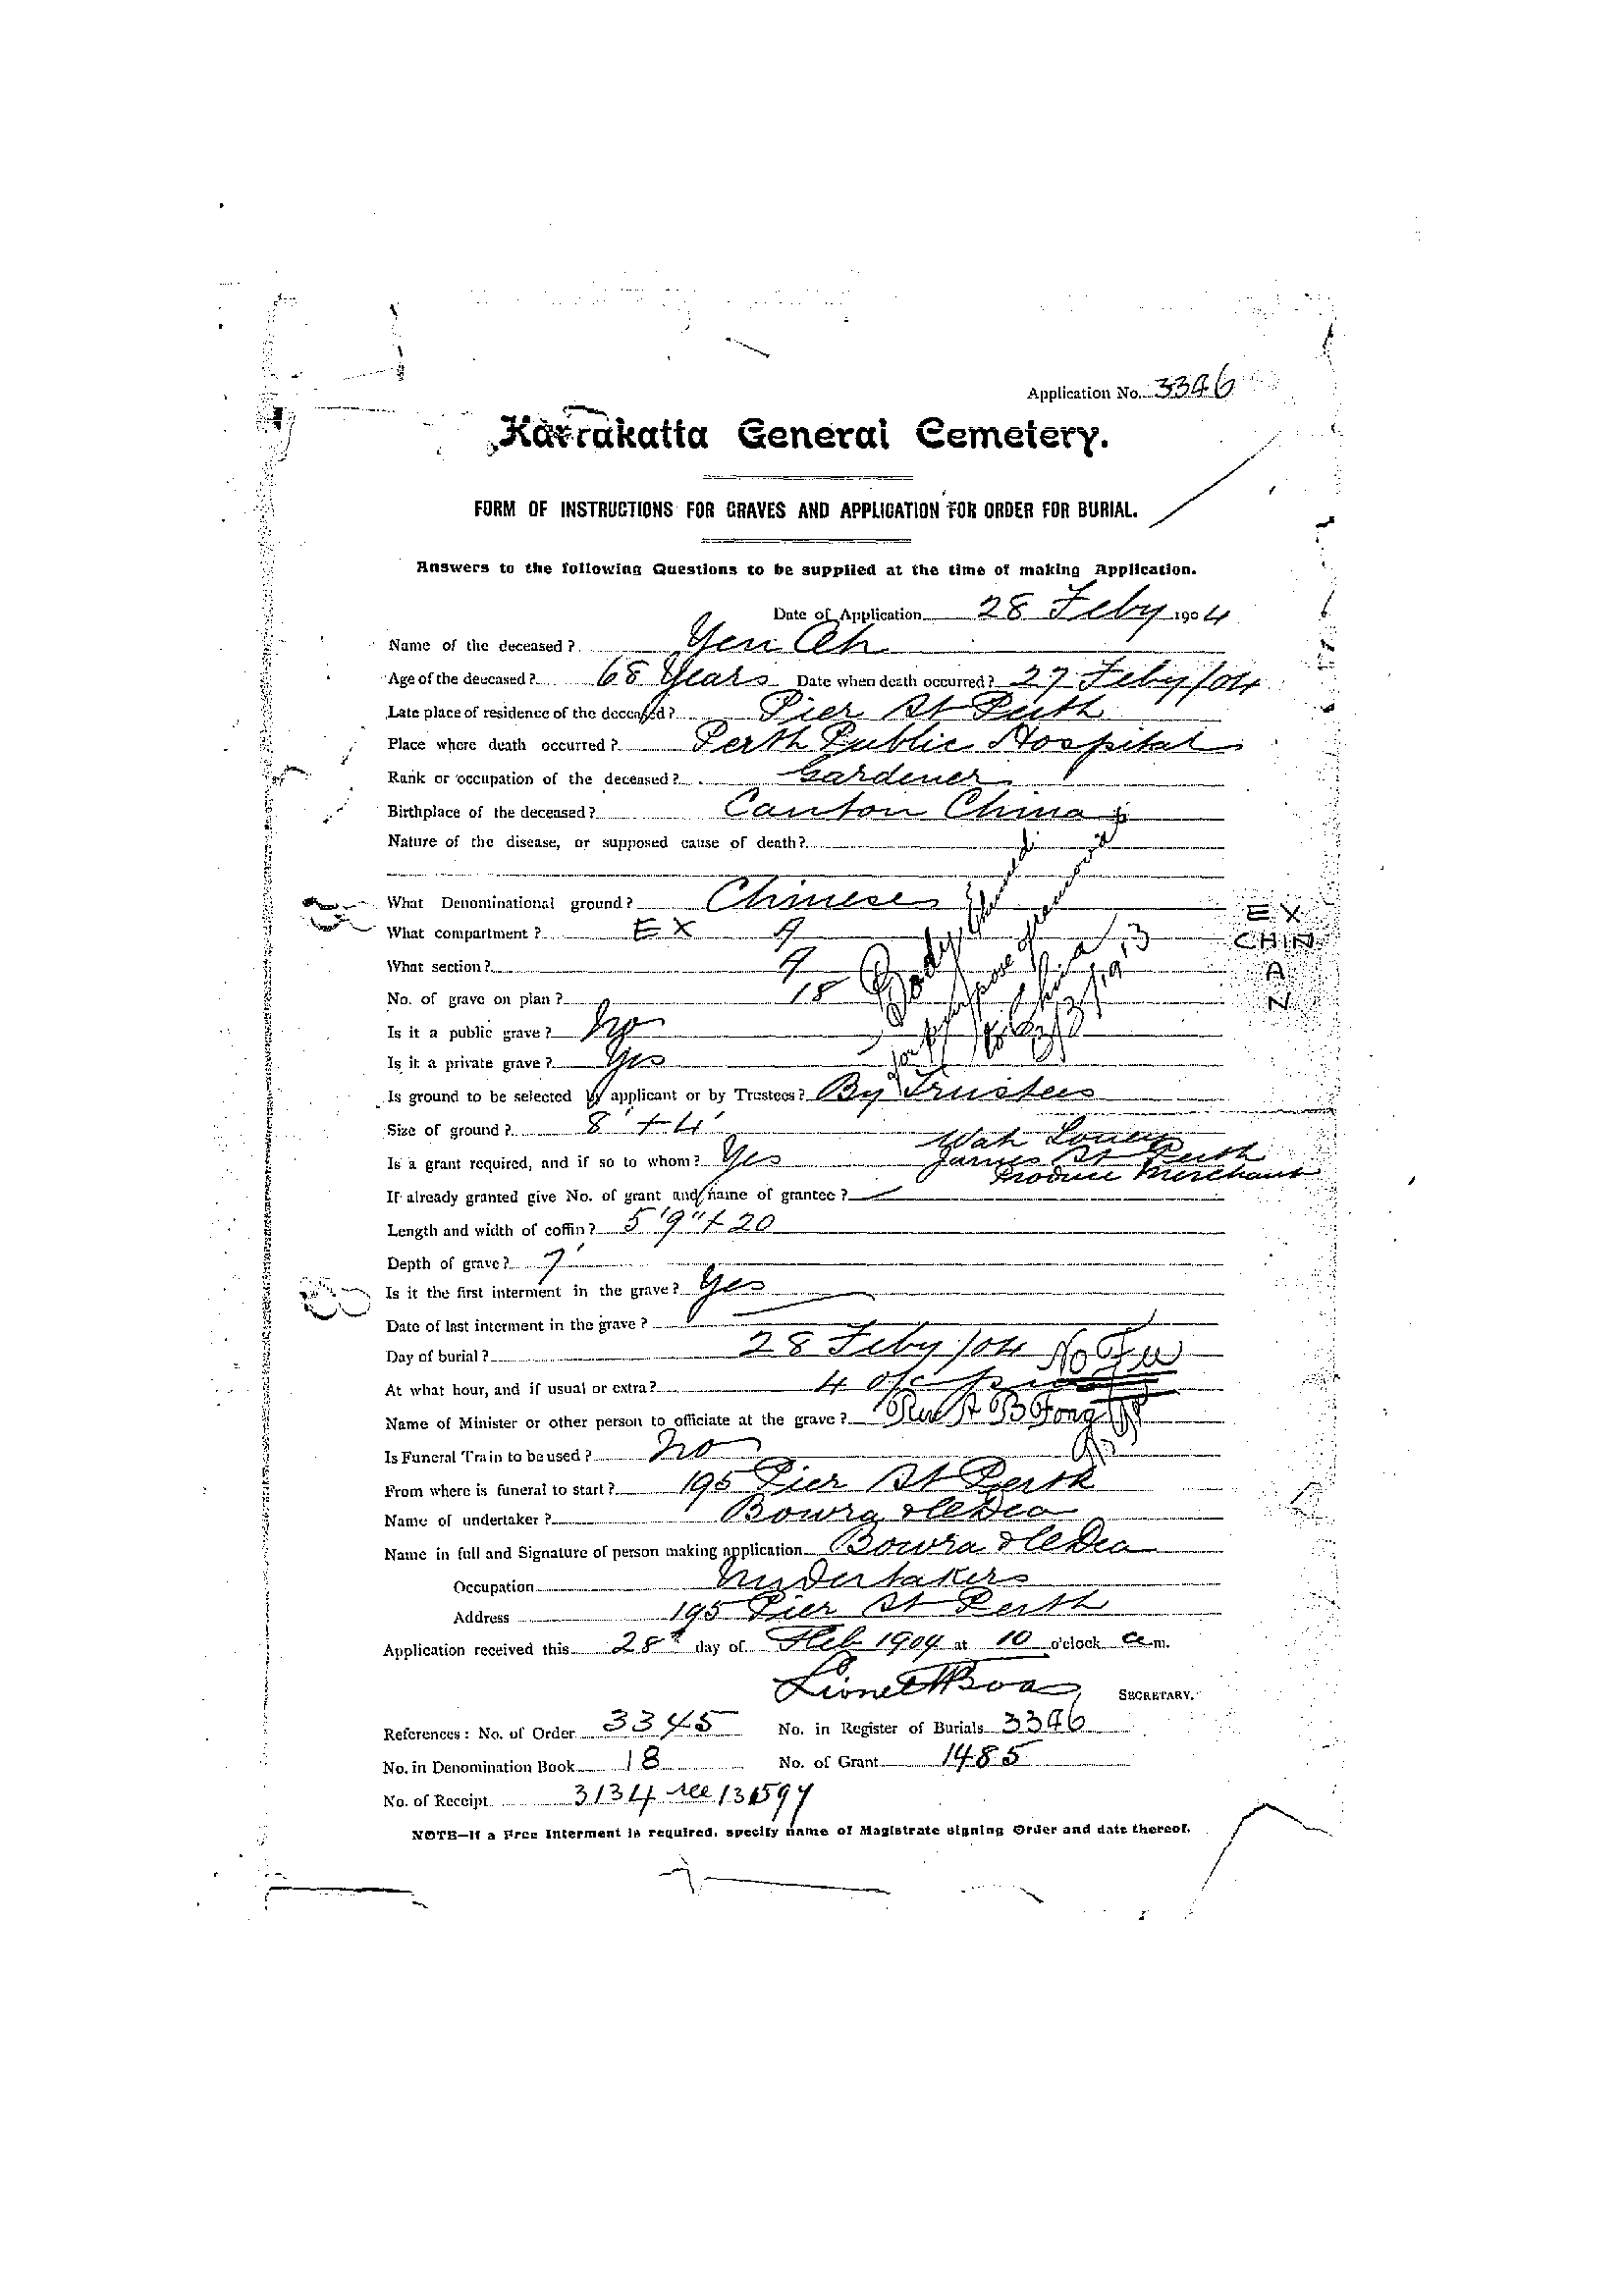 Application No. 3346
Karrakatta General Cemetery.
FORM OF INSTRUCTIONS FOR GRAVES AND APPLICATION FOR ORDER FOR BURIAL.
Answers to the following Questions to be supplied at the time of making Application.
Date of Application 28 Feby 1904
Name of the deceased? Yen Ah
Age of the deceased? 68 Years Date when death occurred? 27 Feby/04
Late place of residence of the deceased? Pier St Perth
Place where death occurred? Perth Public Hospital
Rank or occupation of the deceased? Gardener
Birthplace of the deceased? Canton China
Nature of the disease, or supposed cause of death?
What Denominational ground? Chinese
What compartment? EX A
What section? A
No. of grave on plan? 18
EX
CHIN
A
N
Body
for purpose of
China
1913
Is it a public grave? No
Is it a private grave? Yes
Is ground to be selected by applicant or by Trustees? By Trustees
Size of ground? 8' + 4'
Is a grant required, and if so to whom? Yes Wah
James St Perth
Produce Merchant
If already granted give No. of grant and name of grantee?
Length and width of coffin? 5'9" + 20
Depth of grave? 7'
Is it the first interment in the grave? Yes
Date of last interment in the grave?
Day of burial? 28 Feby/04
At what hour, and if usual or extra? 4 o/c pm
Name of Minister or other person to officiate at the grave?
Is Funeral Train to be used? No
From where is funeral to start? 195 Pier St Perth
Name of undertaker? Bowra & O'Dea
Name in full and Signature of person making application Bowra & O'Dea
Occupation Undertakers
Address 195 Pier St Perth
Application received this 28th day of Feb 1904 at 10 o'clock a.m.
Lionel Boas SECRETARY.
References: No. of Order 3345 No. in Register of Burials 3346
No. in Denomination Book 18 No. of Grant 1485
No. of Receipt 3134
NOTE—If a Free Interment is required, specify name of Magistrate signing Order and date thereof.